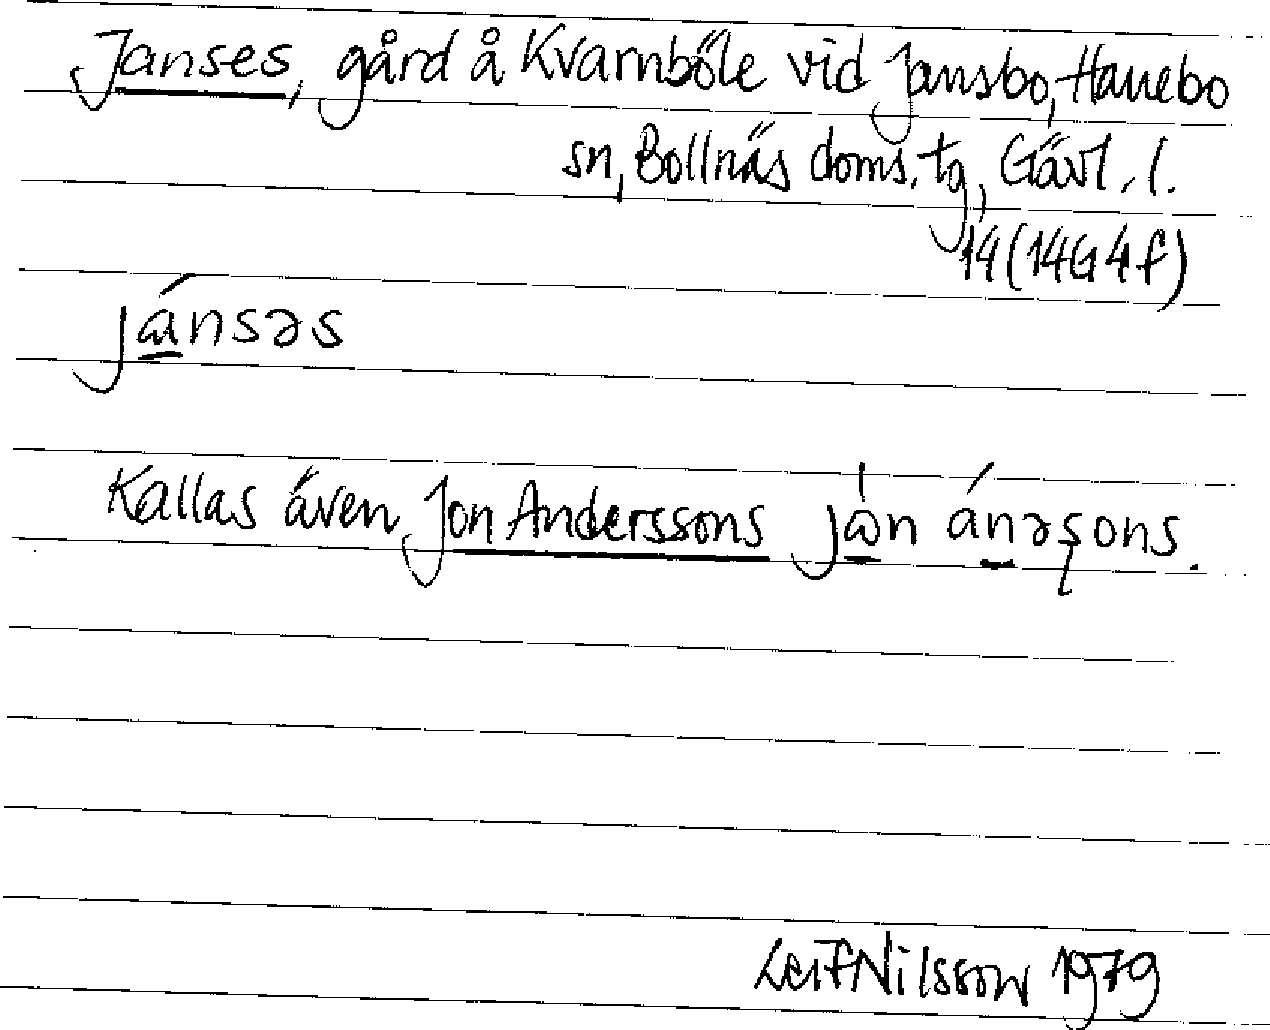 Janses, gård å Kvarnböle vid Jansbo, Hanebo
sn, Bollnäs doms. tg, Gävl. l.
14 (14G4f)
jánsəs
Kallas även Jon Anderssons jɷ̀n ánəʂons.
Leif Nilsson 1979